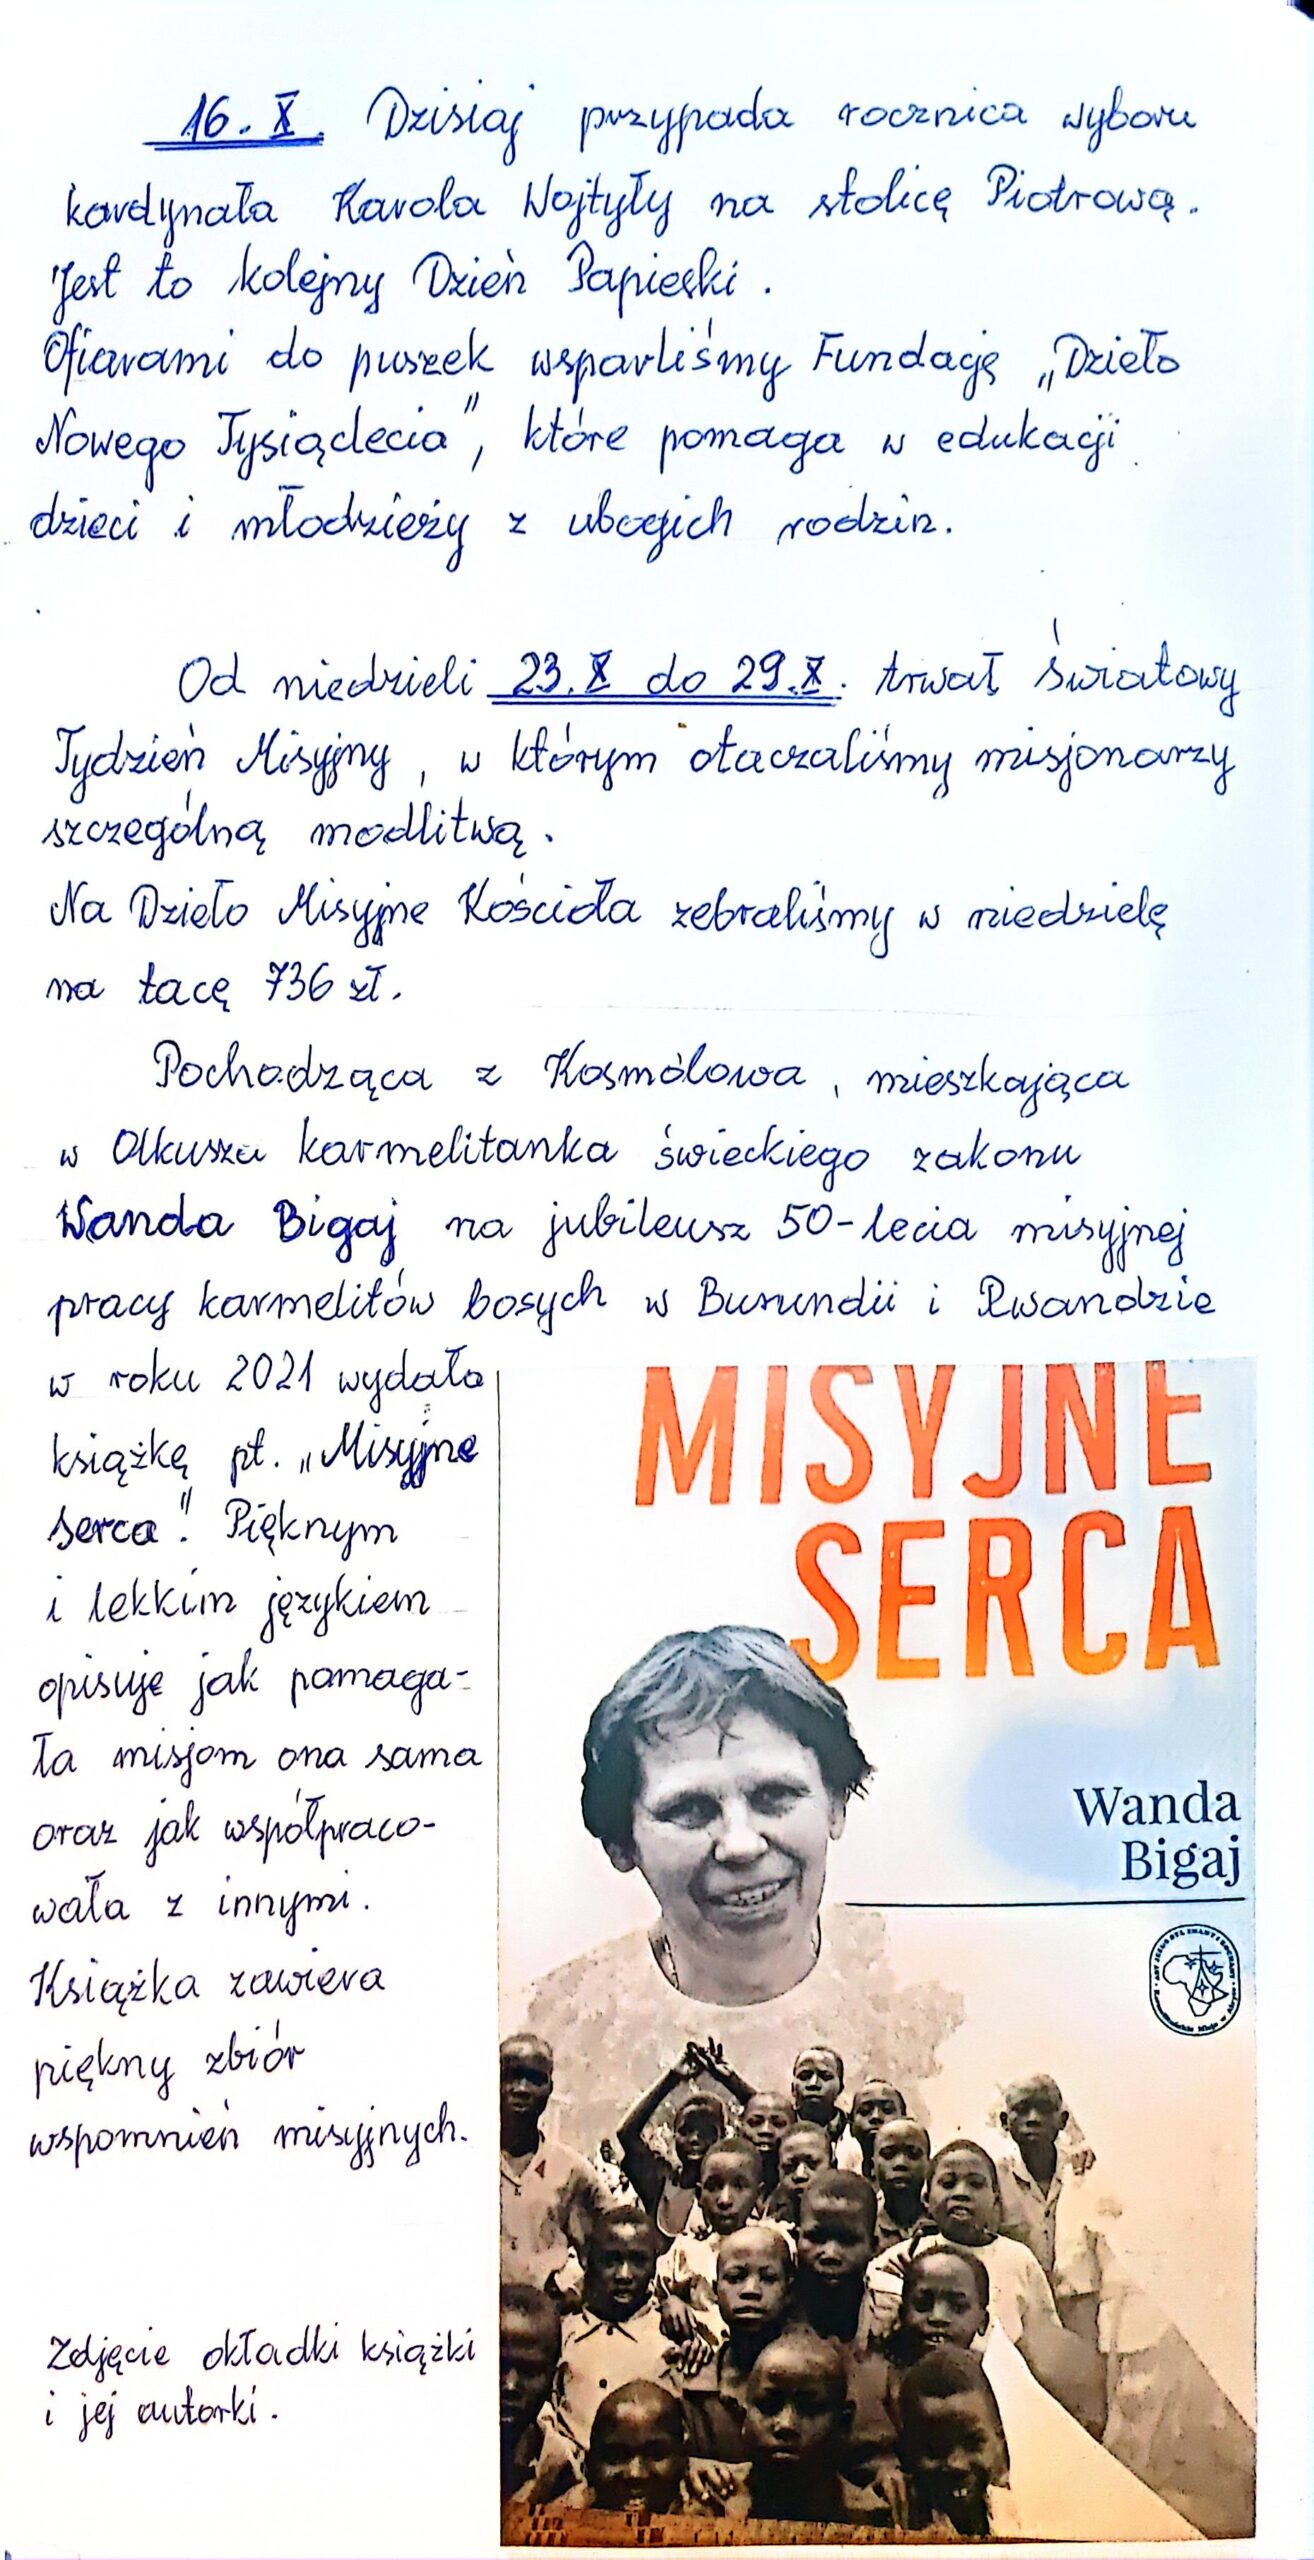 16. X. Dzisiaj przypada rocznica wyboru
kardynała Karola Wojtyły na stolicę Piotrową.
Jest to kolejny Dzień Papieski.
Ofiarami do puszek wsparliśmy Fundację „Dzieło
Nowego Tysiąclecia”, które pomaga w edukacji
dzieci i młodzieży z ubogich rodzin.
Od niedzieli 23. X do 29. X. trwał światowy
Tydzień Misyjny, w którym otaczaliśmy misjonarzy
szczególną modlitwą.
Na Dzieło Misyjne Kościoła zebraliśmy w niedzielę
na tacę 736 zł.
Pochodząca z Kosmolowa, mieszkająca
w Olkuszu karmelitanka świeckiego zakonu
Wanda Bigaj na jubileusz 50-lecia misyjnej
pracy karmelitów bosych w Burundii i Rwandzie
w roku 2021 wydała
książkę pt. „Misyjne
serca”. Pięknym
i lekkim językiem
opisuje jak pomaga-
ła misjom ona sama
oraz jak współpraco-
wała z innymi.
Książka zawiera
piękny zbiór
wspomnień misyjnych.
Zdjęcie okładki książki
i jej autorki.
MISYJNE
SERCA
Wanda
Bigaj